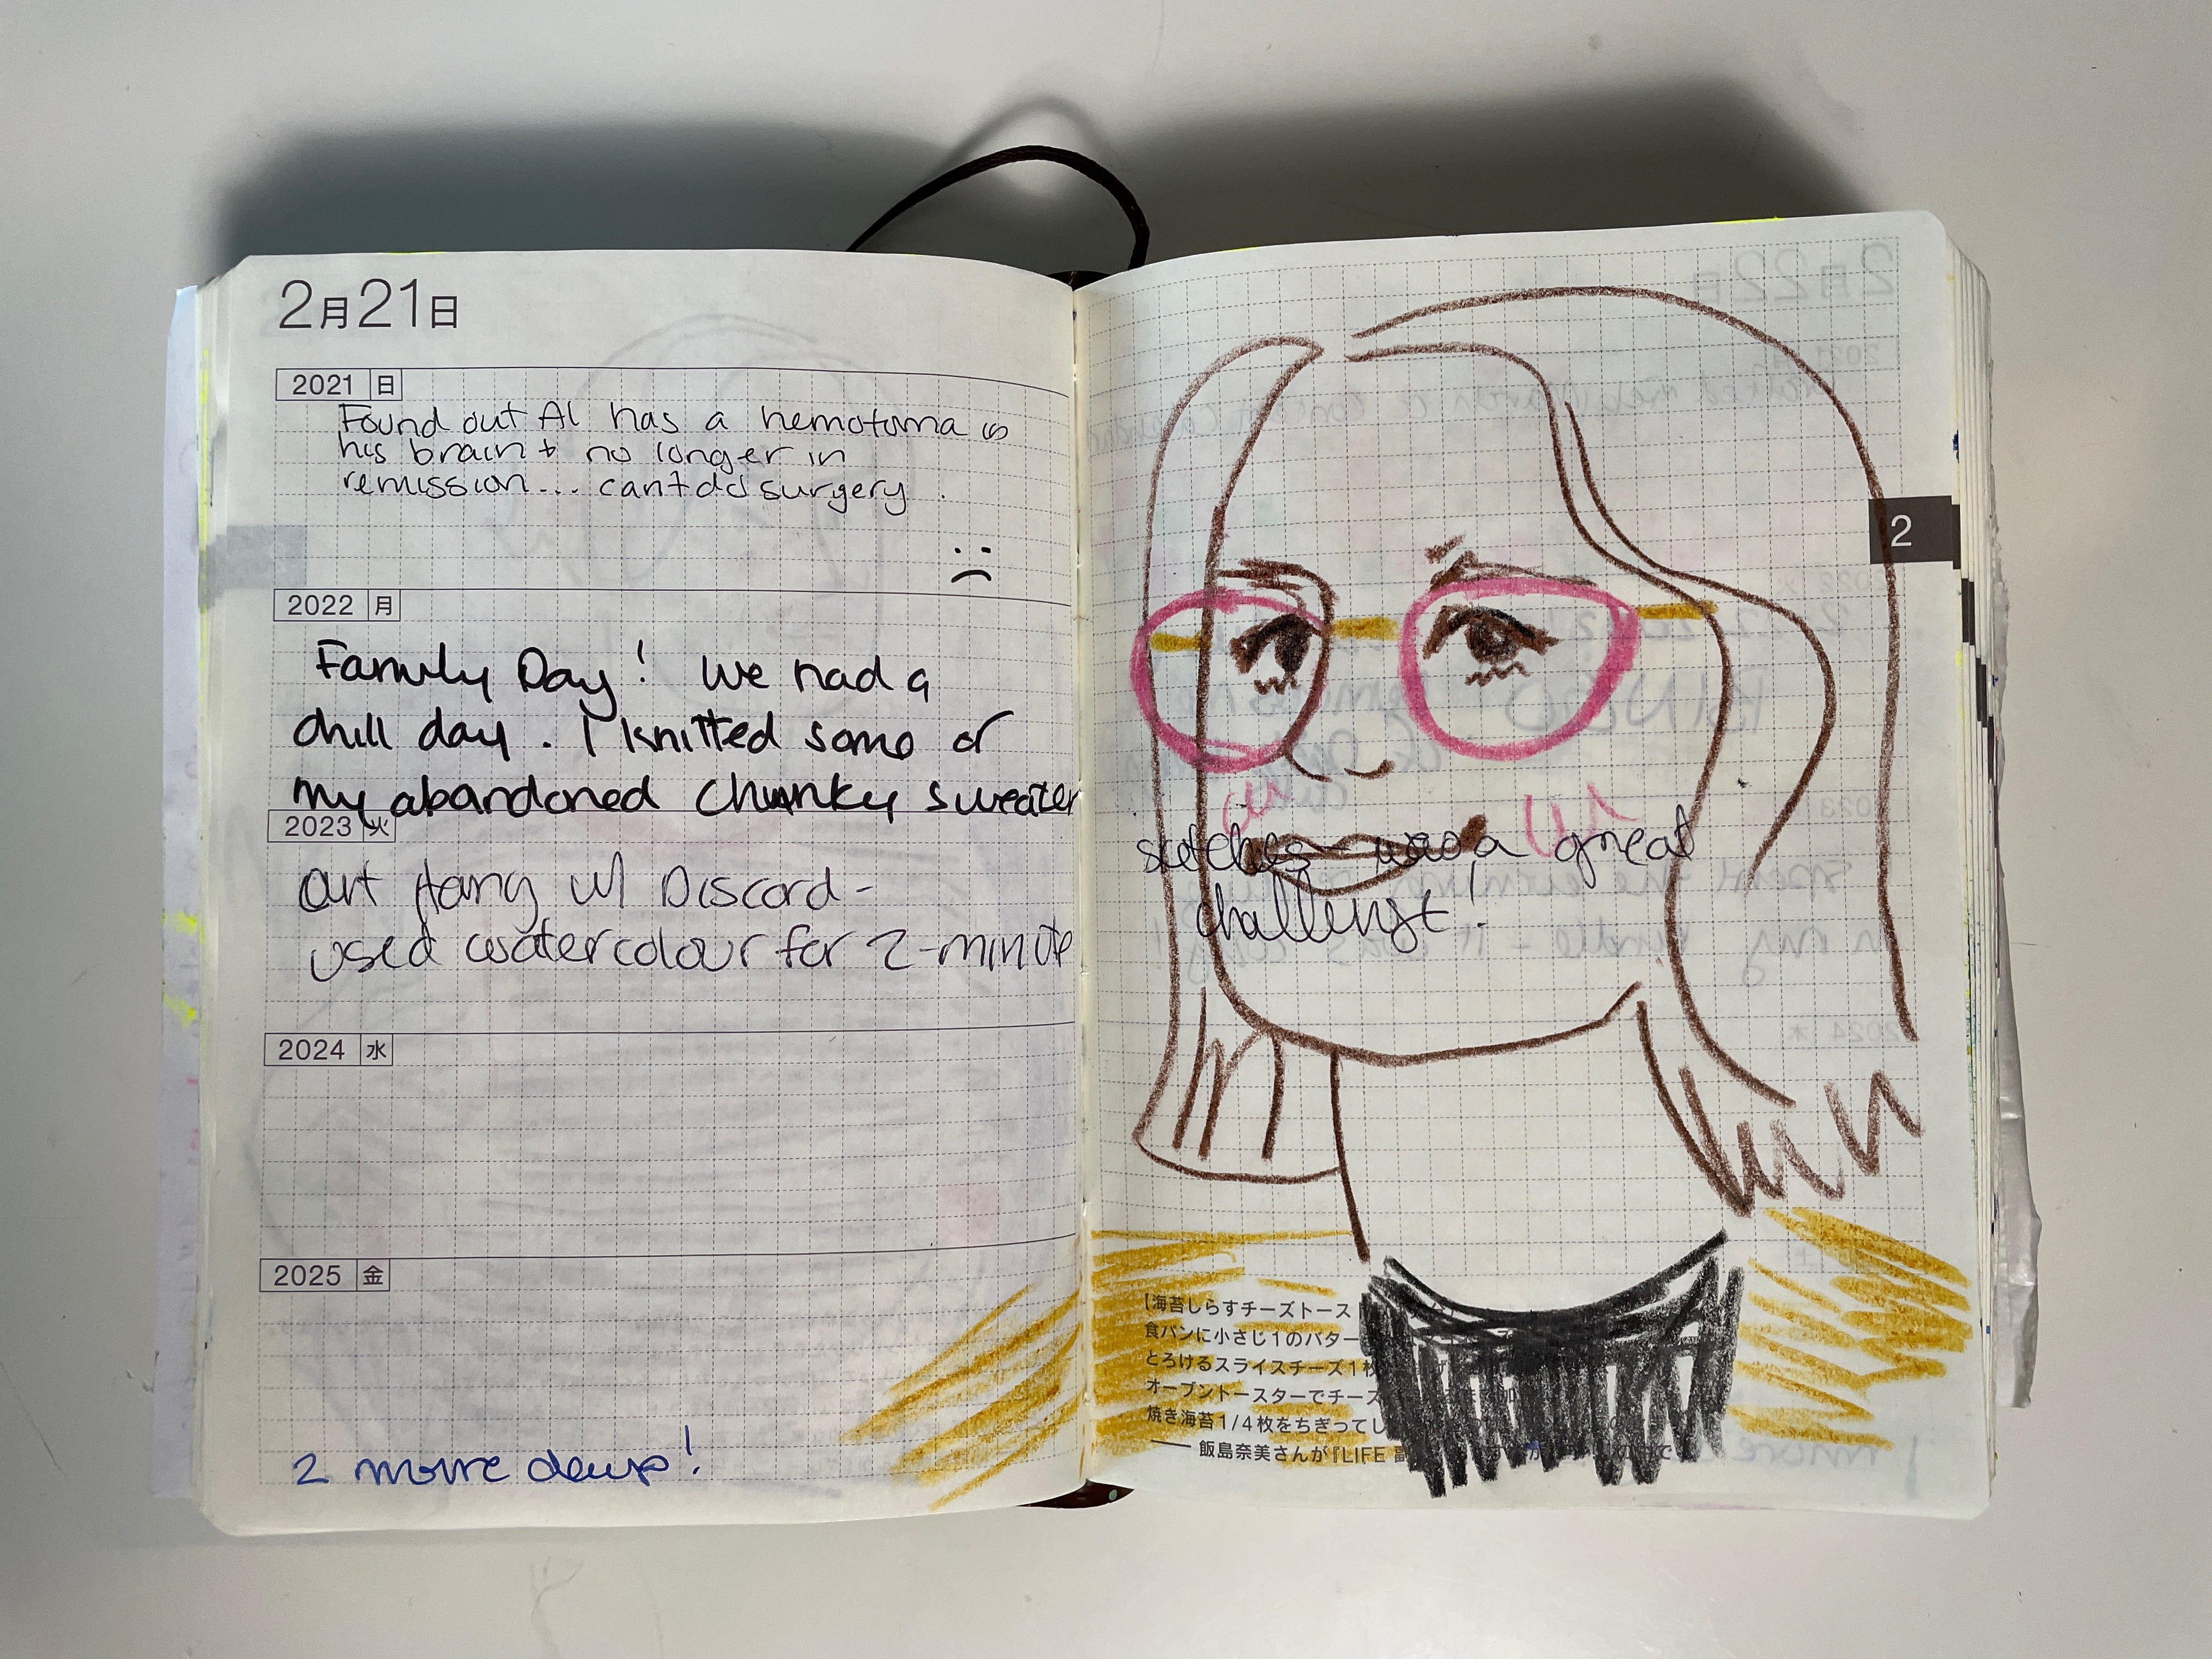 2月21日
2021 日
Found out Al has a hemotoma in
his brain + no longer in
remission... can't do surgery.
2022 月
Family Day! We had a
chill day. I knitted some of
my abandoned chunky sweater
2023 火
Art Hang w/ Discord -
used watercolour for 2-minute
sketches - was a great
challenge!
2024 水
2025 金
2 more days!
2
【海苔しらすチーズトースト
食パンに小さじ1のバター
とろけるスライスチーズ1枚
オーブントースターでチーズ
焼き海苔1/4枚をちぎってし
―― 飯島奈美さんが『LIFE 副